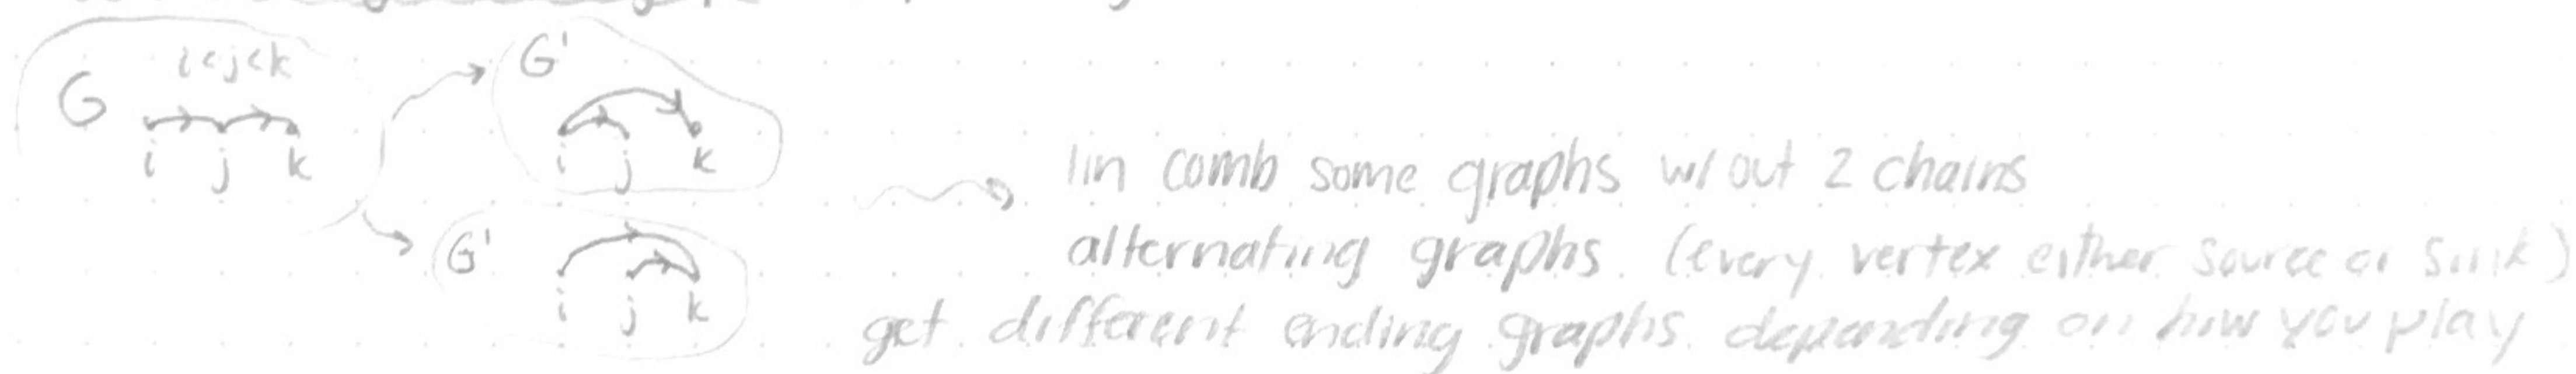 i<j<k
G
i j k
G'
i j k
G'
i j k
lin comb some graphs w/out 2 chains
alternating graphs (every vertex either source or sink)
get different ending graphs depending on how you play